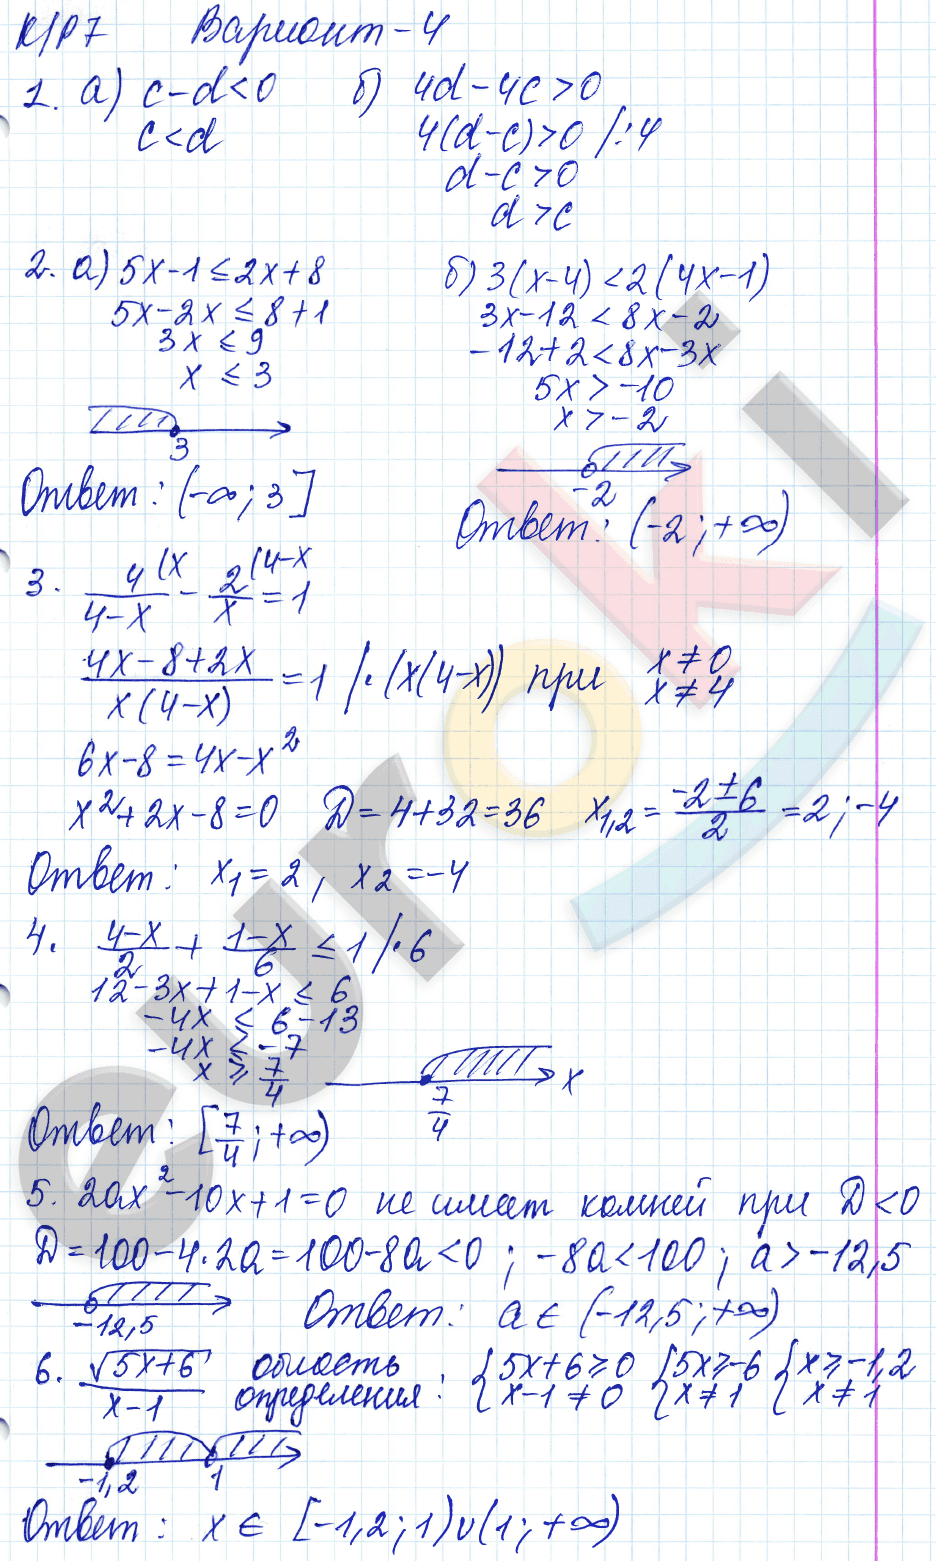 К/Р 7 Вариант-4
1. а) c-d<0 б) 4d-4c>0
c<d 4(d-c)>0 /:4
d-c>0
d>c
2. а) 5x-1≤2x+8 б) 3(x-4)<2(4x-1)
5x-2x≤8+1 3x-12<8x-2
3x≤9 -12+2<8x-3x
x≤3 5x>-10
x>-2
3
-2
Ответ: (-∞;3] Ответ: (-2;+∞)
3. 4/(4-x) (x - 2/x (4-x = 1
(4x-8+2x)/(x(4-x)) = 1 /·(x(4-x)) при x≠0
x≠4
6x-8=4x-x²
x²+2x-8=0 D=4+32=36 x₁,₂=(-2±6)/2=2;-4
Ответ: x₁=2, x₂=-4
4. (4-x)/2 + (1-x)/6 ≤ 1 /·6
12-3x+1-x≤6
-4x≤6-13
-4x≤-7
x≥7/4
7/4 x
Ответ: [7/4;+∞)
5. 2ax²-10x+1=0 не имеет корней при D<0
D=100-4·2a=100-8a<0; -8a<100; a>-12,5
-12,5 Ответ: a∈(-12,5;+∞)
6. √(5x+6)/(x-1) область определения: {5x+6≥0 {5x≥-6 {x≥-1,2
x-1≠0 x≠1 x≠1
-1,2 1
Ответ: x∈[-1,2;1)∪(1;+∞)
euroki